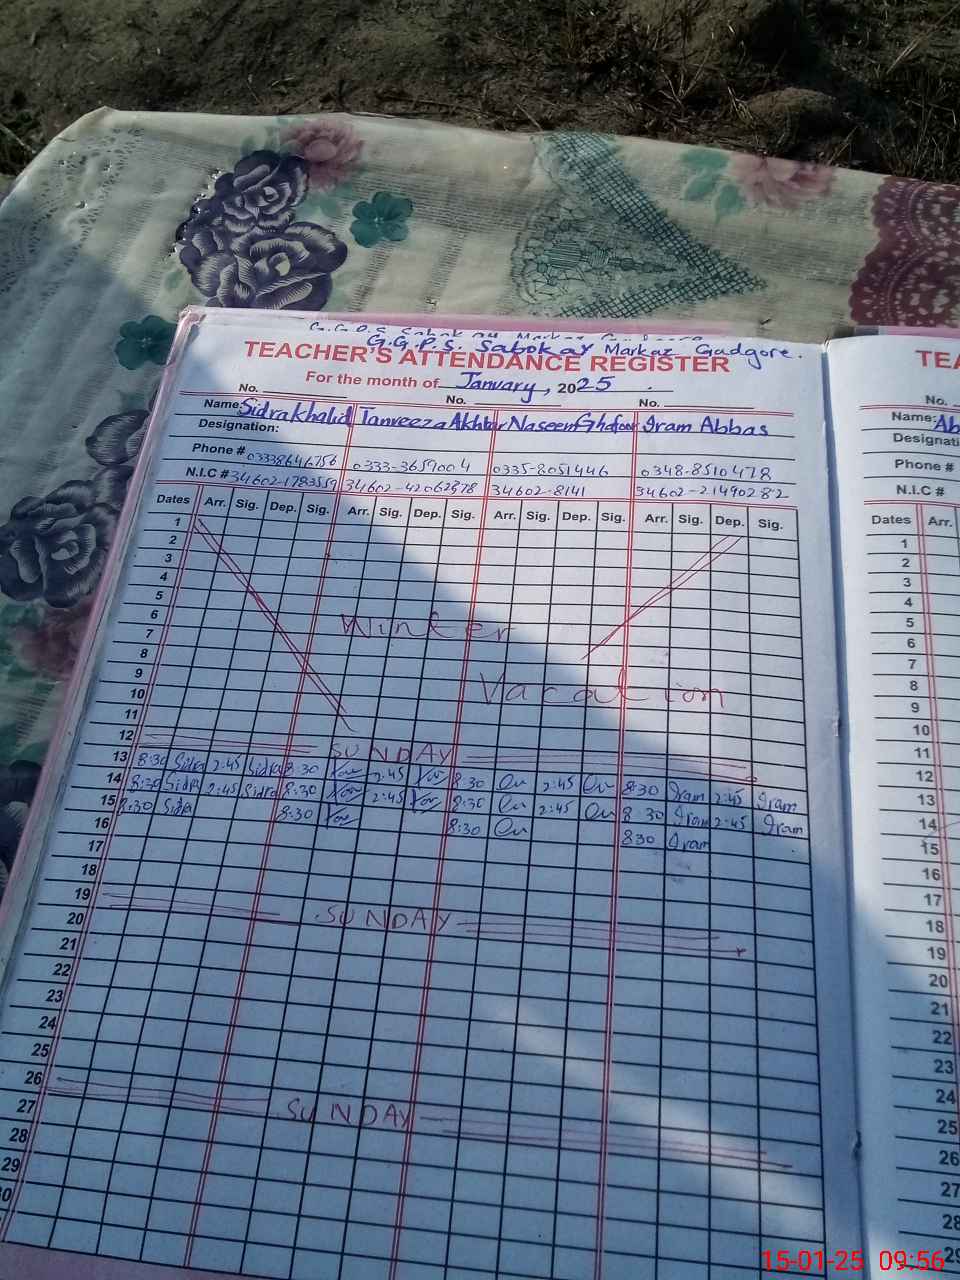 G.G.P.S. Sabokay Markaz Gadgore.
TEACHER'S ATTENDANCE REGISTER
For the month of January, 2025
No. No. No.
Name: Sidra Khalid Tanveeza Akhtar Naseem Ghafoor Iram Abbas
Designation:
Phone # 03338646756 0333-3659004 0335-8051446 0348-8510478
N.I.C # 34602-1783559 34602-42062878 34602-8141 34602-21490282
Dates Arr. Sig. Dep. Sig. Arr. Sig. Dep. Sig. Arr. Sig. Dep. Sig. Arr. Sig. Dep. Sig.
1
2
3
4
5
6 Winter
7
8
9 Vacation
10
11
12 SUNDAY
13 8:30 Sidra 2:45 Sidra 8:30 2:45 8:30 2:45 8:30 Iram 2:45 Iram
14 8:30 Sidra 2:45 Sidra 8:30 2:45 8:30 2:45 8:30 Iram 2:45 Iram
15 8:30 Sidra 8:30 8:30 8:30 Iram
16
17
18
19 SUNDAY
20
21
22
23
24
25
26 SUNDAY
27
28
29
30
TEA
No.
Name: Ab
Designati
Phone #
N.I.C #
Dates Arr.
1
2
3
4
5
6
7
8
9
10
11
12
13
14
15
16
17
18
19
20
21
22
23
24
25
26
27
28
29
15-01-25 09:56